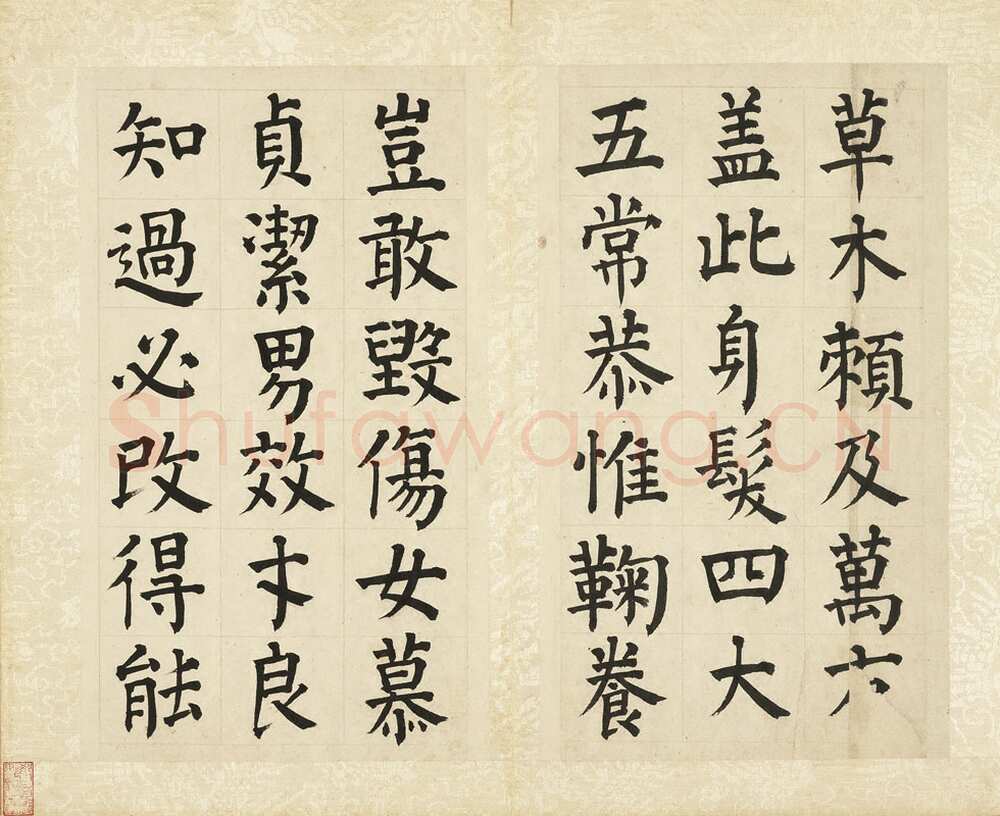 草木賴及萬方
盖此身髮四大
五常恭惟鞠養
豈敢毀傷女慕
貞潔男效才良
知過必改得能
Shufawang.CN